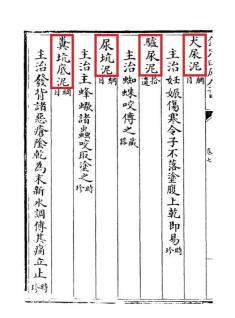 犬尿泥綱目
主治妊娠傷寒令子不落塗腹上乾即易時珍
驢尿泥拾遺
主治蜘蛛咬傅之藏器
尿坑泥綱目
主治主蜂蠍諸蟲咬取塗之時珍
糞坑底泥綱目
主治發背諸惡瘡陰乾為末新水調傅其痛立止時珍
卷七